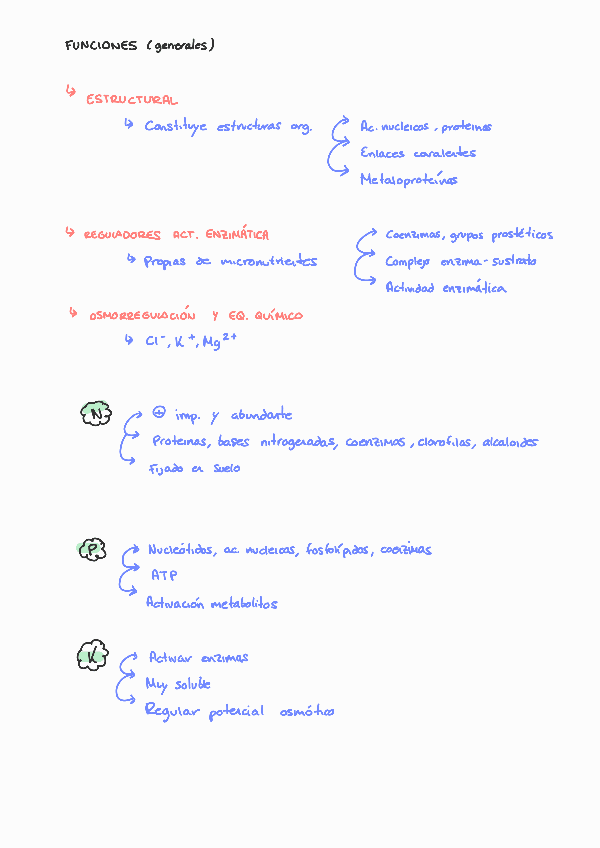 FUNCIONES (generales)
↳ ESTRUCTURAL
↳ Constituye estructuras org.
Ac. nucleicos, proteínas
Enlaces covalentes
Metaloproteínas
↳ REGULADORES ACT. ENZIMÁTICA
↳ Propias de micronutrientes
Coenzimas, grupos prostéticos
Complejo enzima-sustrato
Actividad enzimática
↳ OSMORREGULACIÓN Y EQ. QUÍMICO
↳ Cl⁻, K⁺, Mg²⁺
N
⊕ imp. y abundante
Proteínas, bases nitrogenadas, coenzimas, clorofilas, alcaloides
Fijado en suelo
P
Nucleótidos, ac. nucleicos, fosfolípidos, coenzimas
ATP
Activación metabolitos
K
Activar enzimas
Muy soluble
Regular potencial osmótico